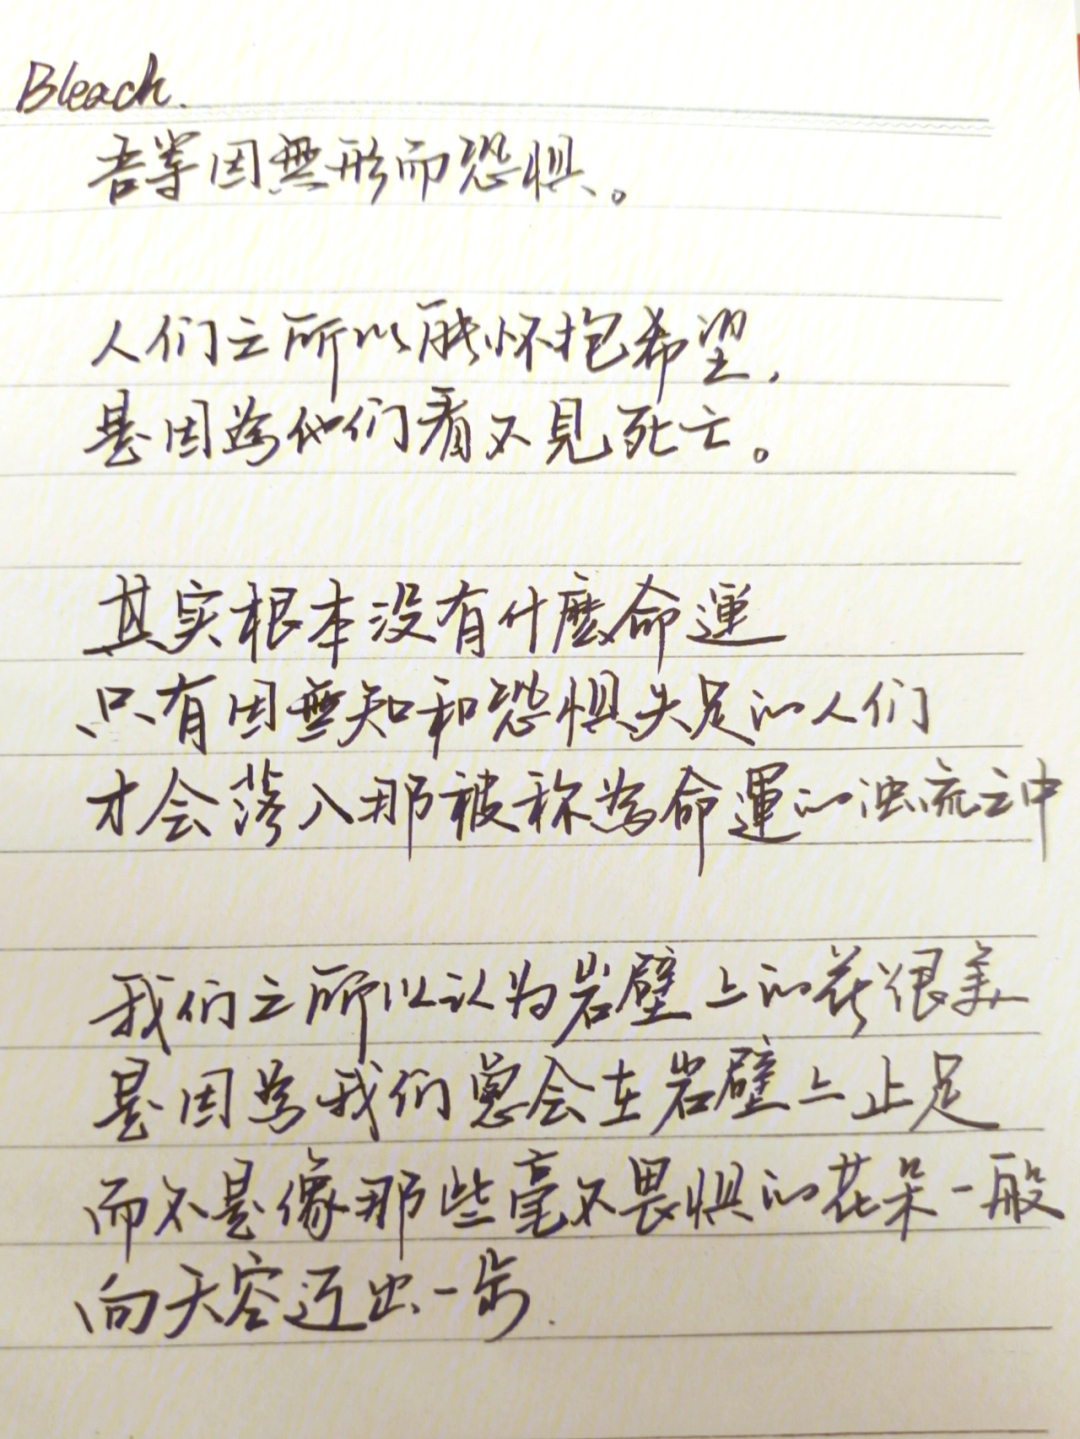 Bleach.
吾等因無形而恐惧。
人们之所以能怀抱希望,
是因為他们看不見死亡。
其实根本没有什麽命運
只有因無知和恐惧失足的人们
才会落入那被称為命運的浊流之中
我们之所以认为岩壁上的花很美
是因為我们总会在岩壁上止足
而不是像那些毫不畏惧的花朵一般
向天容迈出一步.